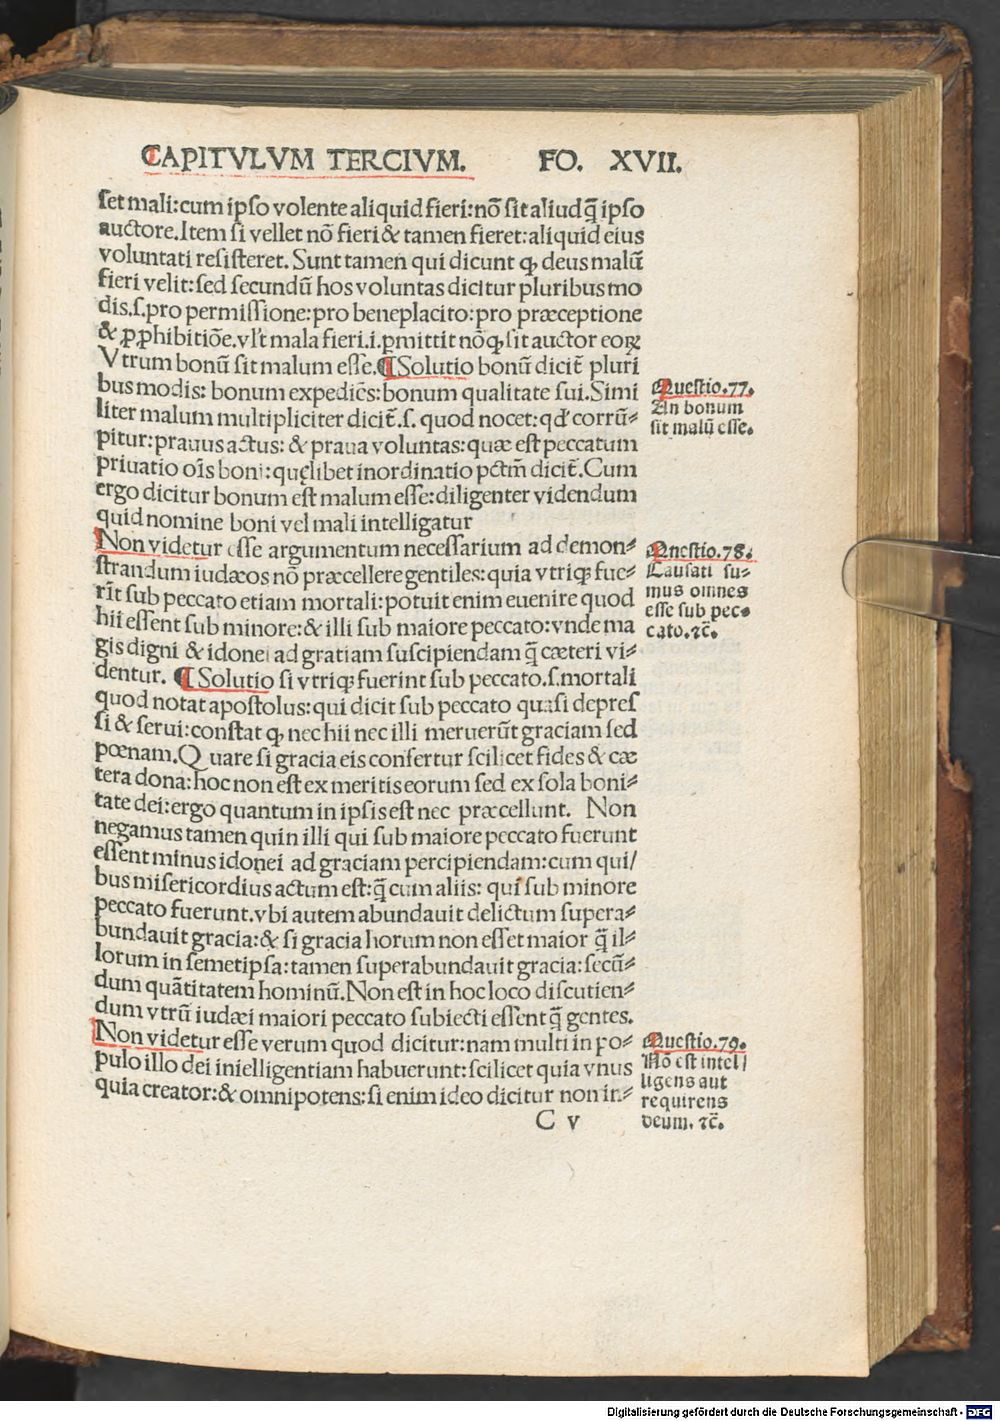 CAPITVLVM TERCIVM. FO. XVII.
set mali:cum ipso volente aliquid fieri:nō sit aliud q̄ ipso
auctore.Item si vellet nō fieri & tamen fieret:aliquid eius
voluntati resisteret. Sunt tamen qui dicunt ꝙ deus malū
fieri velit:sed secundū hos voluntas dicitur pluribus mo
dis.s.pro permissione:pro beneplacito:pro præceptione
& ꝓphibitiōe.vl't mala fieri.i.ꝑmittit nō ꝙ sit auctor eoꝝ
Vtrum bonū sit malum esse.¶Solutio bonū dicit̄ pluri
bus modis: bonum expediēs:bonum qualitate sui.Simi
liter malum multipliciter dicit̄.s. quod nocet:qd' corrū⸗
pitur:prauus actus: & praua voluntas:quæ est peccatum
priuatio oīs boni:quęlibet inordinatio pctīm dicit̄.Cum
ergo dicitur bonum est malum esse:diligenter videndum
quid nomine boni vel mali intelligatur
Non videtur esse argumentum necessarium ad demon⸗
strandum iudæos nō præcellere gentiles:quia vtriqꝫ fue⸗
rīt sub peccato etiam mortali:potuit enim euenire quod
hii essent sub minore:& illi sub maiore peccato:vnde ma
gis digni & idonei ad gratiam suscipiendam q̄ cæteri vi⸗
dentur. ¶Solutio si vtriqꝫ fuerint sub peccato.s.mortali
quod notat apostolus:qui dicit sub peccato quasi depres
si & serui:constat ꝙ nec hii nec illi meruerūt graciam sed
pœnam.Quare si gracia eis confertur scilicet fides & cæ
tera dona:hoc non est ex meritis eorum sed ex sola boni⸗
tate dei:ergo quantum in ipsis est nec præcellunt. Non
negamus tamen quin illi qui sub maiore peccato fuerunt
essent minus idonei ad graciam percipiendam:cum qui/
bus misericordius actum est:q̄ cum aliis: qui sub minore
peccato fuerunt.vbi autem abundauit delictum supera⸗
bundauit gracia:& si gracia horum non esset maior q̄ il⸗
lorum in semetipsa:tamen superabundauit gracia:secū⸗
dum quātitatem hominū.Non est in hoc loco discutien⸗
dum vtrū iudæi maiori peccato subiecti essent q̄ gentes.
Non videtur esse verum quod dicitur:nam multi in po⸗
pulo illo dei inielligentiam habuerunt:scilicet quia vnus
quia creator:& omnipotens:si enim ideo dicitur non in⸗
C v
Questio.77.
An bonum
sit malū esse.
Qnestio.78.
Causati su⸗
mus omnes
esse sub pec⸗
cato.⁊c̄.
Questio.79.
Nō est intel/
ligens aut
requirens
deum. ⁊c̄.
Digitalisierung gefördert durch die Deutsche Forschungsgemeinschaft - DFG